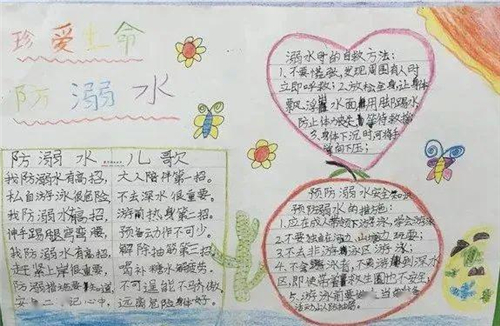 珍爱生命
防溺水
防溺水儿歌
我防溺水有高招,
私自游泳很危险
我防溺水有高招,
伸手踢腿弯弯腰
我防溺水有高招,
赶紧上岸很重要,
防溺措施要知道,
安 记心中,
大人陪伴第一招。
不去深水很重要。
游前热身第二招。
预备动作不可少。
解除抽筋第三招
喝补糖水解疲劳。
不可逞能不马乔傲
远离危险身体好。
溺水时的自救方法:
1.不要慌张,发现周围有人时
立即呼救; 2.放松全身,让身体
飘浮 水面 用脚踢水
防止体力丧失 等待救援
3.身体下沉时可将手
掌向下压;
预防溺水安全知识
预防溺水的措施:
1.应在成人带领下游泳,学会游泳
2.不要独自在河边、山塘边玩耍;
3.不去非游泳区游泳;
4.不会游泳者,不要游到深水
区,即使带着救生圈也不安全;
5.游泳前要做适当的准备
活动以防抽筋